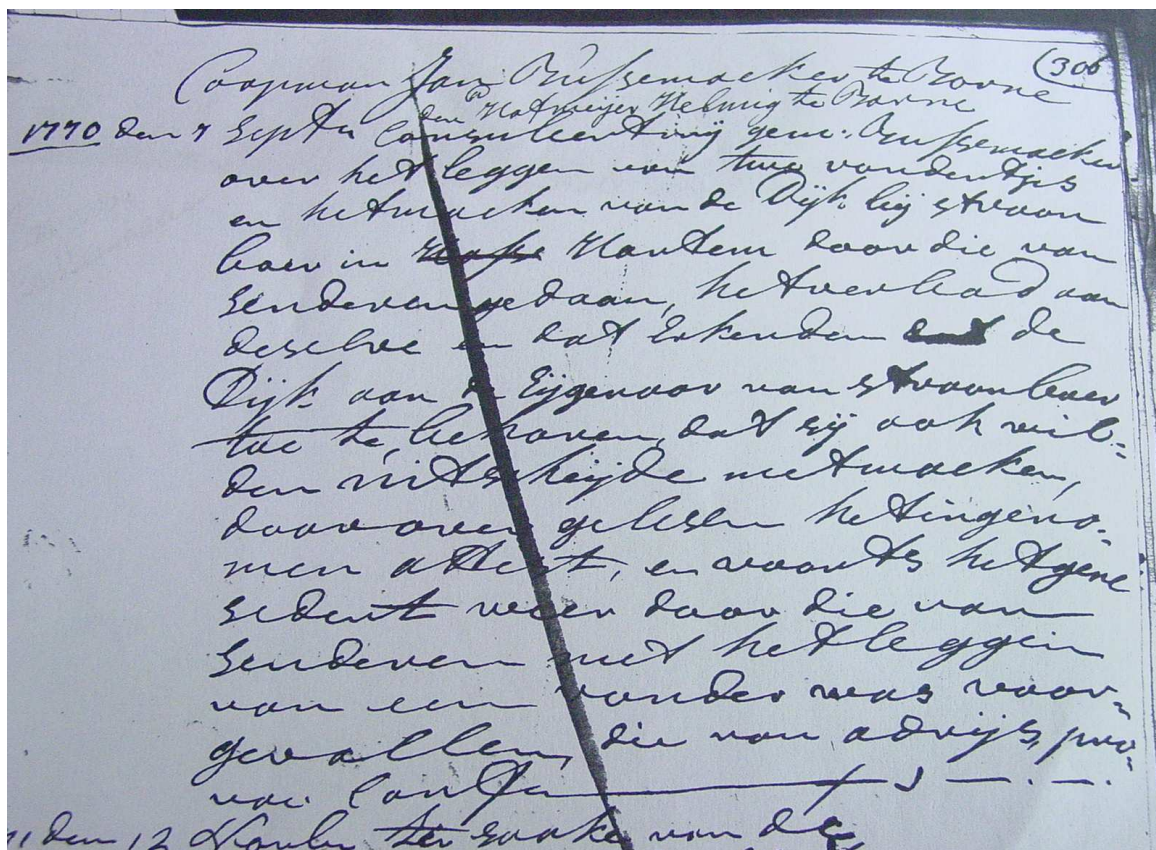 (306
Coopman Jan Bussemaeker te Borne
den Hofmeijer Helmig te Borne
1770 den 7 Septr Consuleenting gem. Bussemaeker
over het leggen van twe vondertjes
en het maeken van de Dijk bij stroom
boer in Hontem door die van
Senderen gedaan, het verbod aan
deselve en dat Erkenden de
Dijk aan de Eijgenaar van stroomboer
toe te behoren, dat sij ook wil=
den uitscheijde met maeken,
daar over gelesen het ingeno=
men attest, en voorts het gene
sedert weer door die van
Senderen met het leggen
van een vonder was voor=
gevallen, die van advijs, pro
den 12 ter saake van de